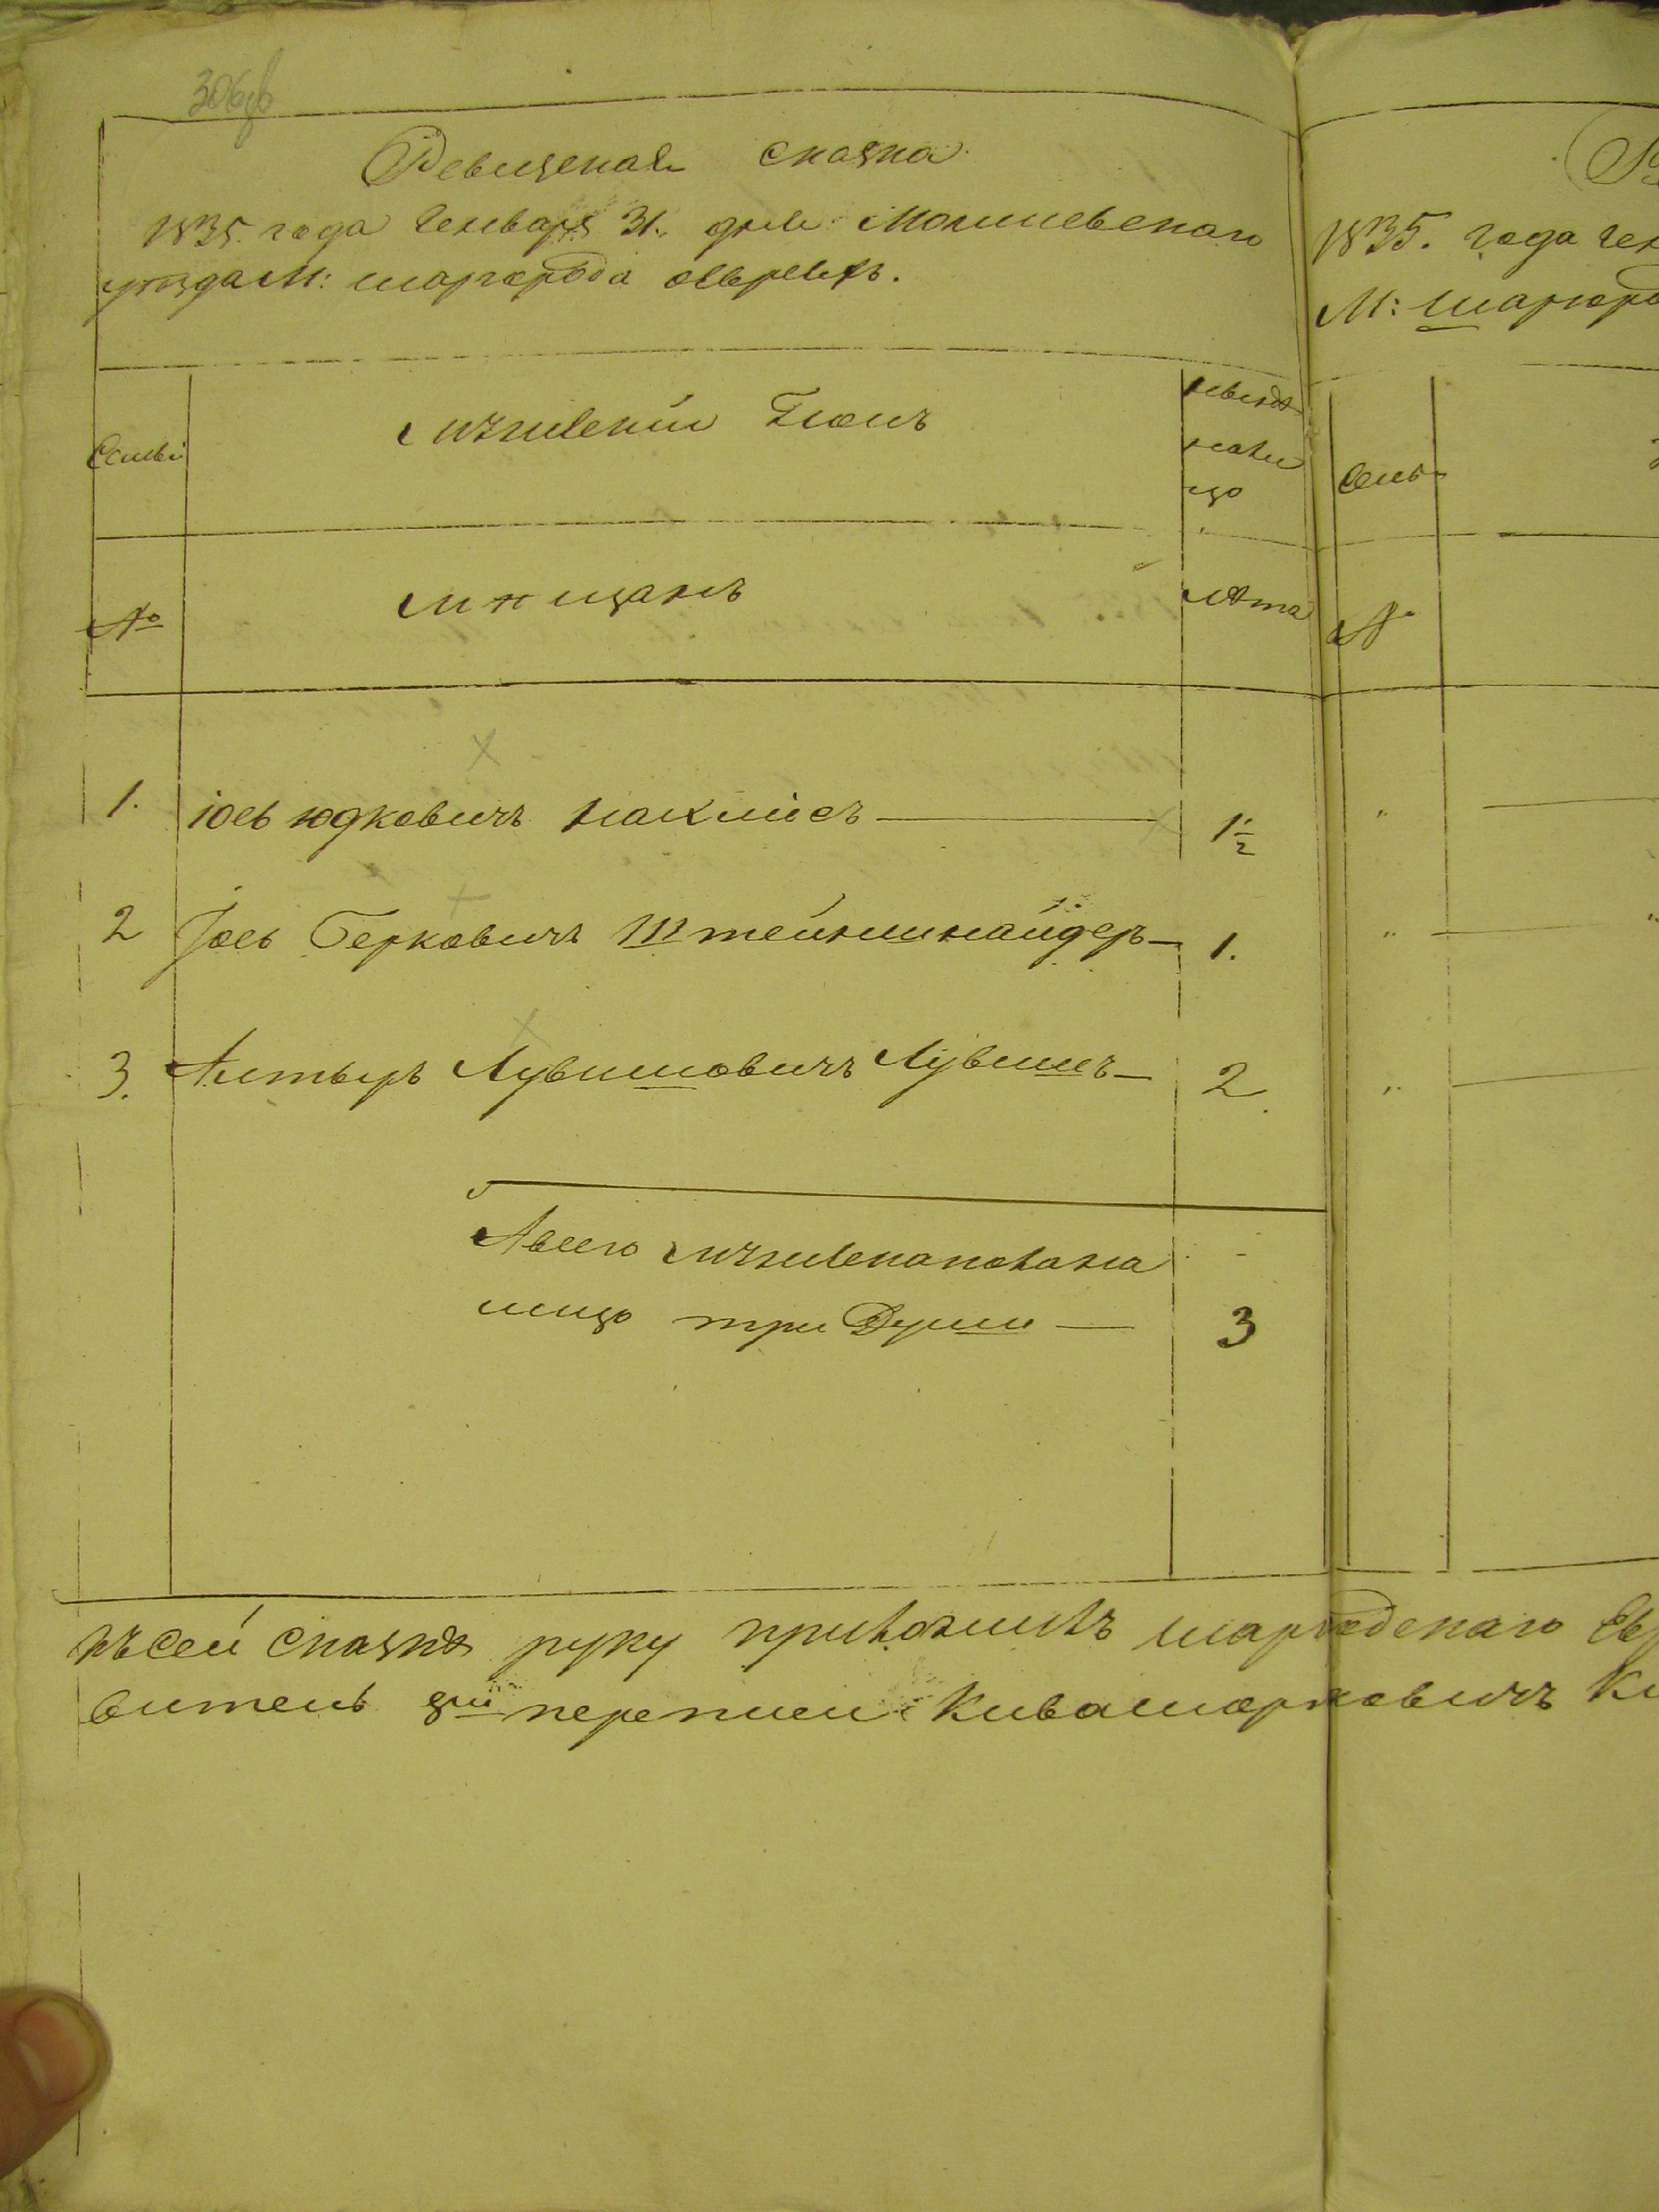 306об
Ревизская сказка
1835. года Генваря 31. дня Могилевскаго
уѣзда М: шаргорода о Евреяхъ.
Семьи
мужеский Полъ
№
мѣщанъ
Лѣта
1. Іось Юдковичъ 1½
2 Іось Берковичъ Штейншнайдеръ 1.
3. Алтыръ Лувишовичъ Лувишъ 2.
Авсего мужеска пола на
лицо три Души 3
къ сей сказкѣ руку приложилъ шаргородскаго Евр
витель 8й переписи Кива Шорковичъ Ки
Р
1835. года Ген
М: шаргоро
Семь
№